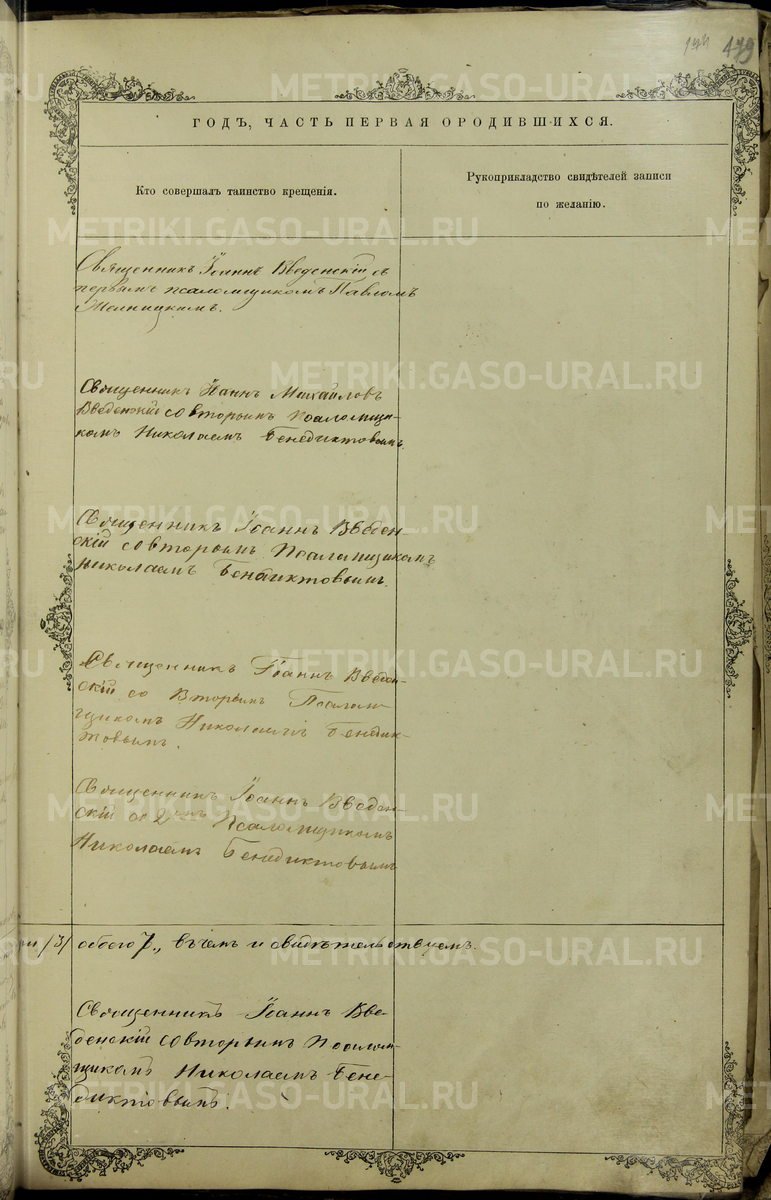 479
ГОДЪ, ЧАСТЬ ПЕРВАЯ О РОДИВШИХСЯ.
Кто совершалъ таинство крещенія.
Рукоприкладство свидѣтелей записи
по желанію.
Священникъ Іоаннъ Введенскій съ
первымъ псаломщикомъ Павломъ
Священникъ Іоаннъ Михайловъ
Введенскій со вторымъ Псаломщи-
комъ Николаемъ Бенедиктовымъ.
Священникъ Іоаннъ Введен-
скій со вторымъ Псаломщикомъ
Николаемъ Бенедиктовымъ.
Священникъ Іоаннъ Введен-
скій со Вторымъ Псалом-
щикомъ Николаемъ Бенедик-
товымъ.
Священникъ Іоаннъ Введен-
скій со 2мъ Псаломщикомъ
Николаемъ Бенедиктовымъ
/3/ обоего 7., въ чемъ и свидѣтельствуемъ.
Священникъ Іоаннъ Вве-
денскій со вторымъ Псалом-
щикомъ Николаемъ Бене-
диктовымъ.
METRIKI.GASO-URAL.RU